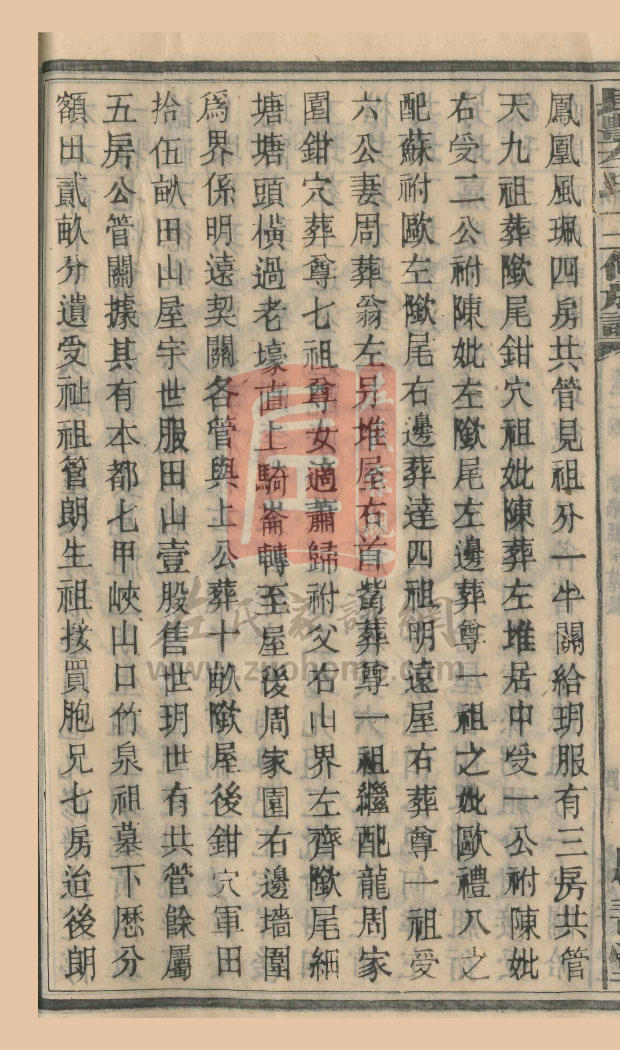 鳳凰風珮四房共管見祖分一牛關給玥服有三房共管
天九祖葬隊尾鉗穴祖妣陳葬左堆居中受一公祔陳妣
右受二公祔陳妣左隊尾左邊葬尊一祖之妣歐禮入之
配蘇祔歐左隊尾右邊葬達四祖明遠屋右葬尊一祖受
六公妻周葬翁左另堆屋右首葬尊一祖繼配龍周家
園鉗穴葬尊七祖尊女適蕭歸祔父右山界左齊隊尾
塘塘頭橫過老壕直上騎崙轉至屋後周家園右邊墻圍
為界係明遠契關各管與上公葬十畝隊屋後鉗穴軍田
拾伍畝田山屋宇世服田山壹股售世玥世有共管餘屬
五房公管關據其有本都七甲峽山口竹泉祖墓下歷分
額田貳畝分遺受祉祖管朗生祖接買胞兄七房迨後朗
左氏家譜網
www.zuohome.com